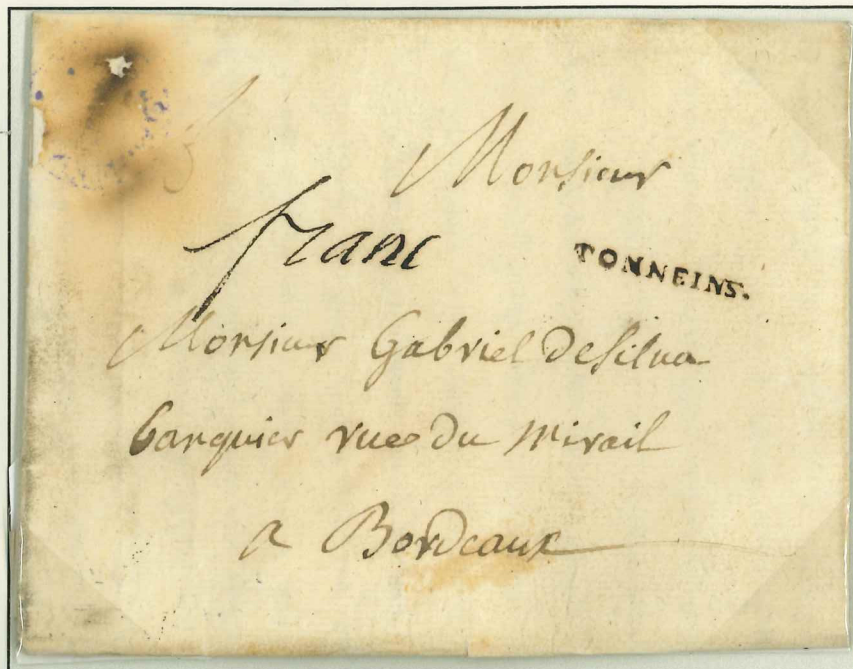 Monsieur
franc
TONNEINS.
Monsieur Gabriel DeSilva
banquier rue Du Mirail
a Bordeaux